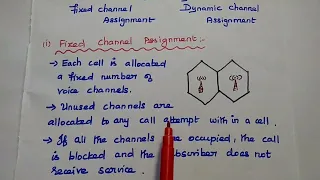 Fixed channel Dynamic channel
Assignment Assignment
(i) Fixed Channel Assignment:-
→ Each cell is allocated
a fixed number of
voice channels.
→ Unused channels are
allocated to any call attempt with in a cell.
→ If all the channels are occupied, the call
is blocked and the subscriber does not
receive service.